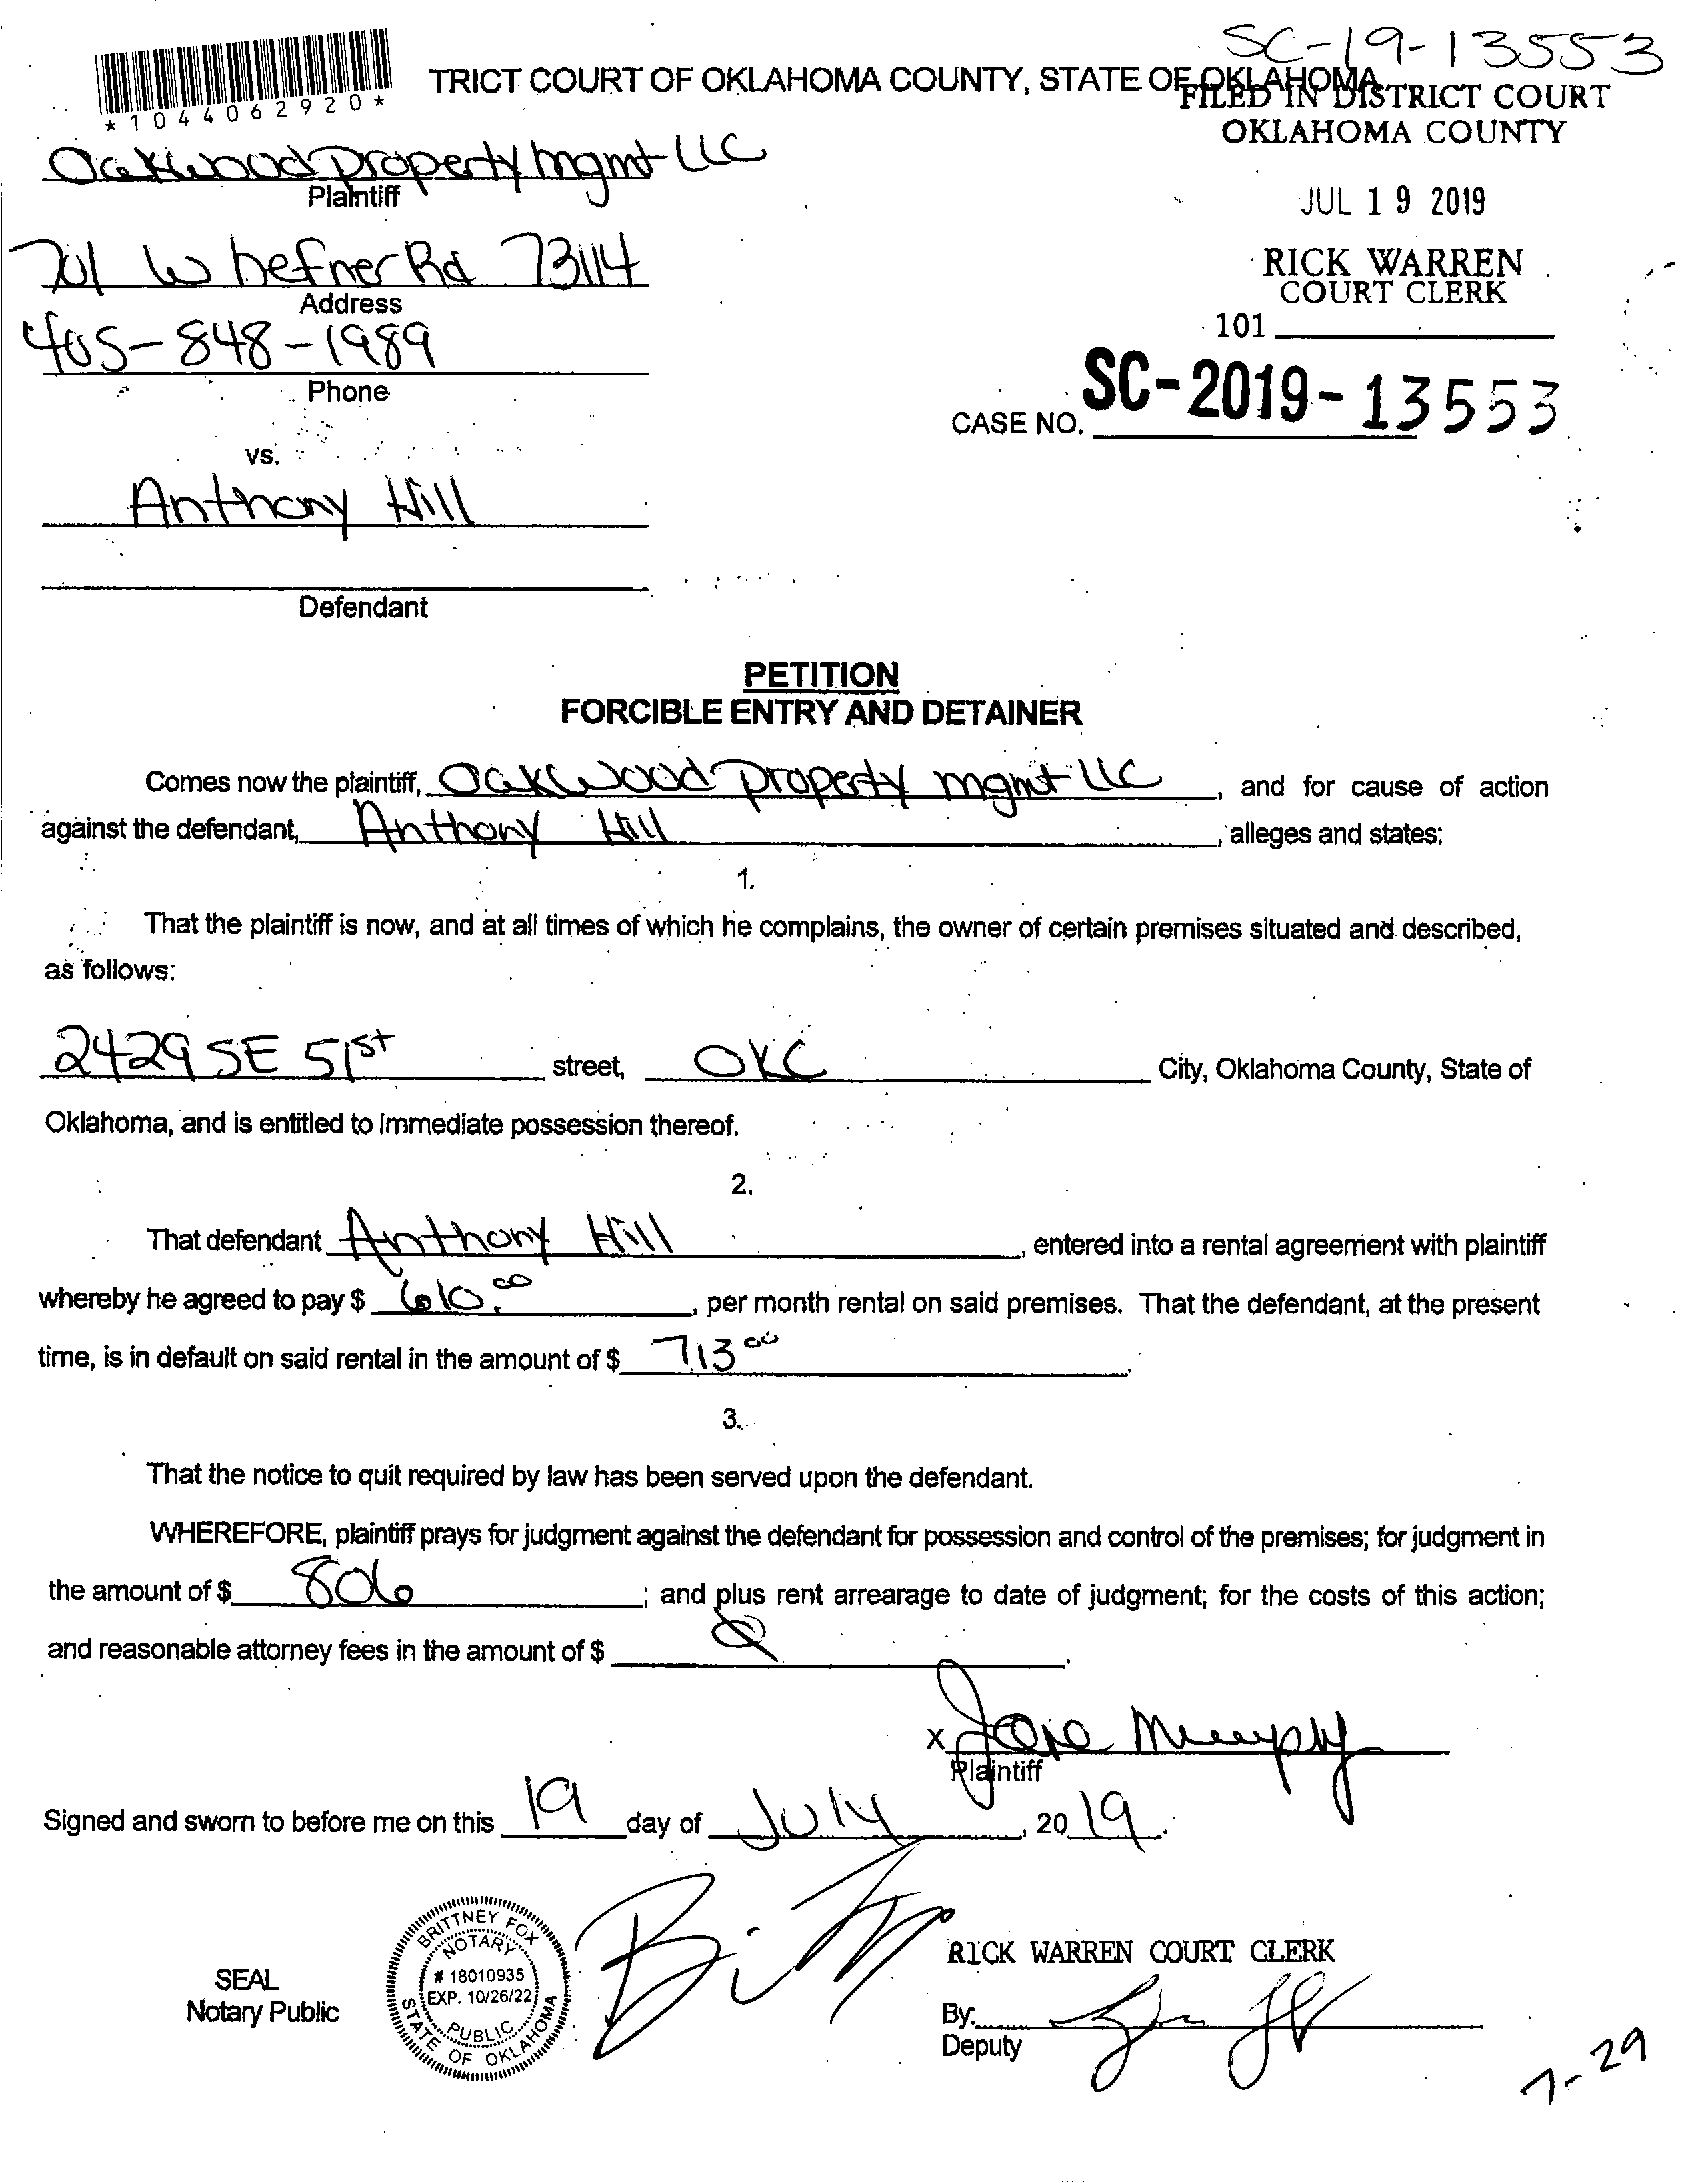 SC-19-13553
TRICT COURT OF OKLAHOMA COUNTY, STATE OF OKLAHOMA
FILED IN DISTRICT COURT
OKLAHOMA COUNTY
*1044062920*
Oakwood Property mgmt LLC
Plaintiff
JUL 19 2019
701 W hefner Rd 73114
Address
RICK WARREN
COURT CLERK
405-848-1989
Phone
101
CASE NO. SC-2019-13553
vs.
Anthony Hill
Defendant
PETITION
FORCIBLE ENTRY AND DETAINER
Comes now the plaintiff, Oakwood property mgmt LLC, and for cause of action
against the defendant, Anthony Hill, alleges and states:
1.
That the plaintiff is now, and at all times of which he complains, the owner of certain premises situated and described,
as follows:
2429 SE 51st street, OKC City, Oklahoma County, State of
Oklahoma, and is entitled to immediate possession thereof.
2.
That defendant Anthony Hill, entered into a rental agreement with plaintiff
whereby he agreed to pay $ 610.00, per month rental on said premises. That the defendant, at the present
time, is in default on said rental in the amount of $ 713 00.
3.
That the notice to quit required by law has been served upon the defendant.
WHEREFORE, plaintiff prays for judgment against the defendant for possession and control of the premises; for judgment in
the amount of $ 806; and plus rent arrearage to date of judgment; for the costs of this action;
and reasonable attorney fees in the amount of $
x Jane Murphy
Plaintiff
Signed and sworn to before me on this 19 day of July, 20 19.
SEAL
Notary Public
BRITTNEY FOX
NOTARY
# 18010935
EXP. 10/26/22
PUBLIC
STATE OF OKLAHOMA
RICK WARREN COURT CLERK
By:
Deputy
7-29